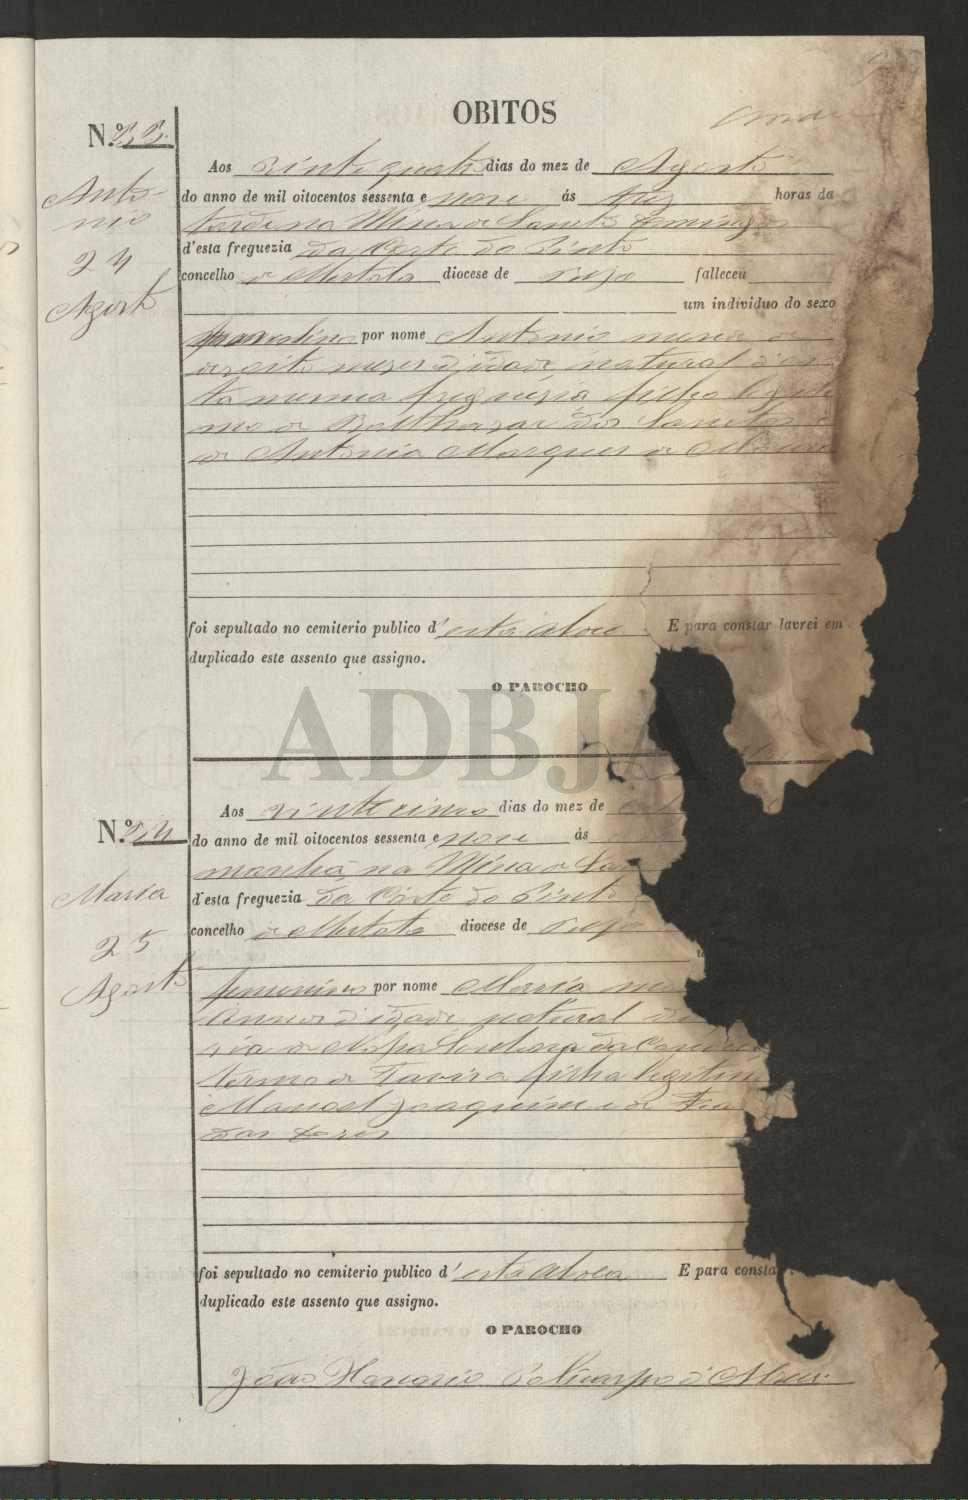 OBITOS
N.º 23
Aos vinte quatro dias do mez de Agosto
Anto-
nio
24
Agosto
do anno de mil oitocentos sessenta e nove ás tres horas da
tarde na Mina de Sancto Domingos
d'esta freguezia da Corte do Pinto
concelho de Mertola diocese de Beja falleceu
um individuo do sexo
masculino por nome Antonio menor de
dezoito mezes d idade natural d'es
ta mesma freguezia filho legiti
mo de Balthazar dos Sanctos e
de Antonia Marques de
foi sepultado no cemiterio publico d'esta aldea E para constar lavrei em
duplicado este assento que assigno.
O PAROCHO
ADBJA
Aos vinte cinco dias do mez de
N.º 24
Maria
25
Agosto
do anno de mil oitocentos sessenta e nove ás
manhã, na Mina de San
d'esta freguezia da Corte do Pinto
concelho de Mertola diocese de Beja
femenino por nome Maria
annos d idade natural
ria de Nossa Senhora da Concei
termo de Tavira filha legitim
Manoel Joaquim e de
das Dores
foi sepultado no cemiterio publico d'esta aldea E para consta
duplicado este assento que assigno.
O PAROCHO
João Honorio Policarpo d'